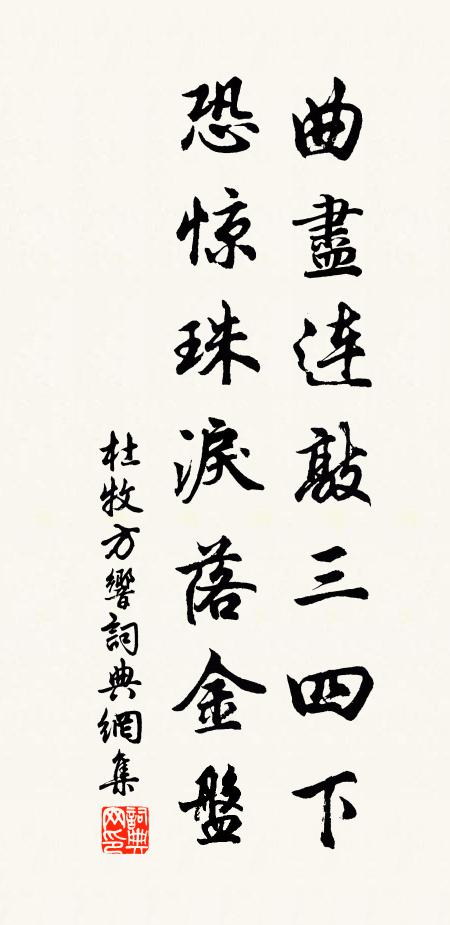 曲盡连敲三四下
恐惊珠淚落金盤
杜牧方響詞典網集
詞典網印